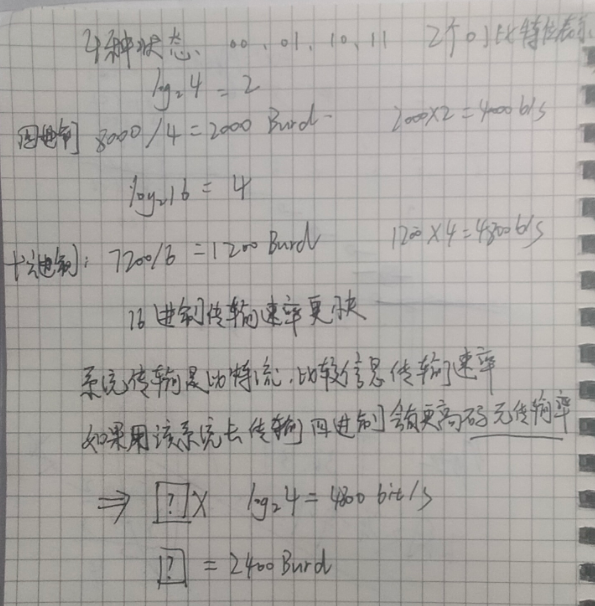 4种状态、 00、01、10、11 2个比特位表示
log₂4 = 2
四进制 8000/4=2000 Burd 2000×2=4000b/s
log₂16 = 4
十六进制: 7200/6=1200 Burd 1200×4=4800b/s
16进制传输速率更快
系统传输是比特流,比较信息传输速率
如果用该系统去传输四进制会有更高码元传输率
⇒ [?]× log₂4=4800 bit/s
[?] = 2400 Burd